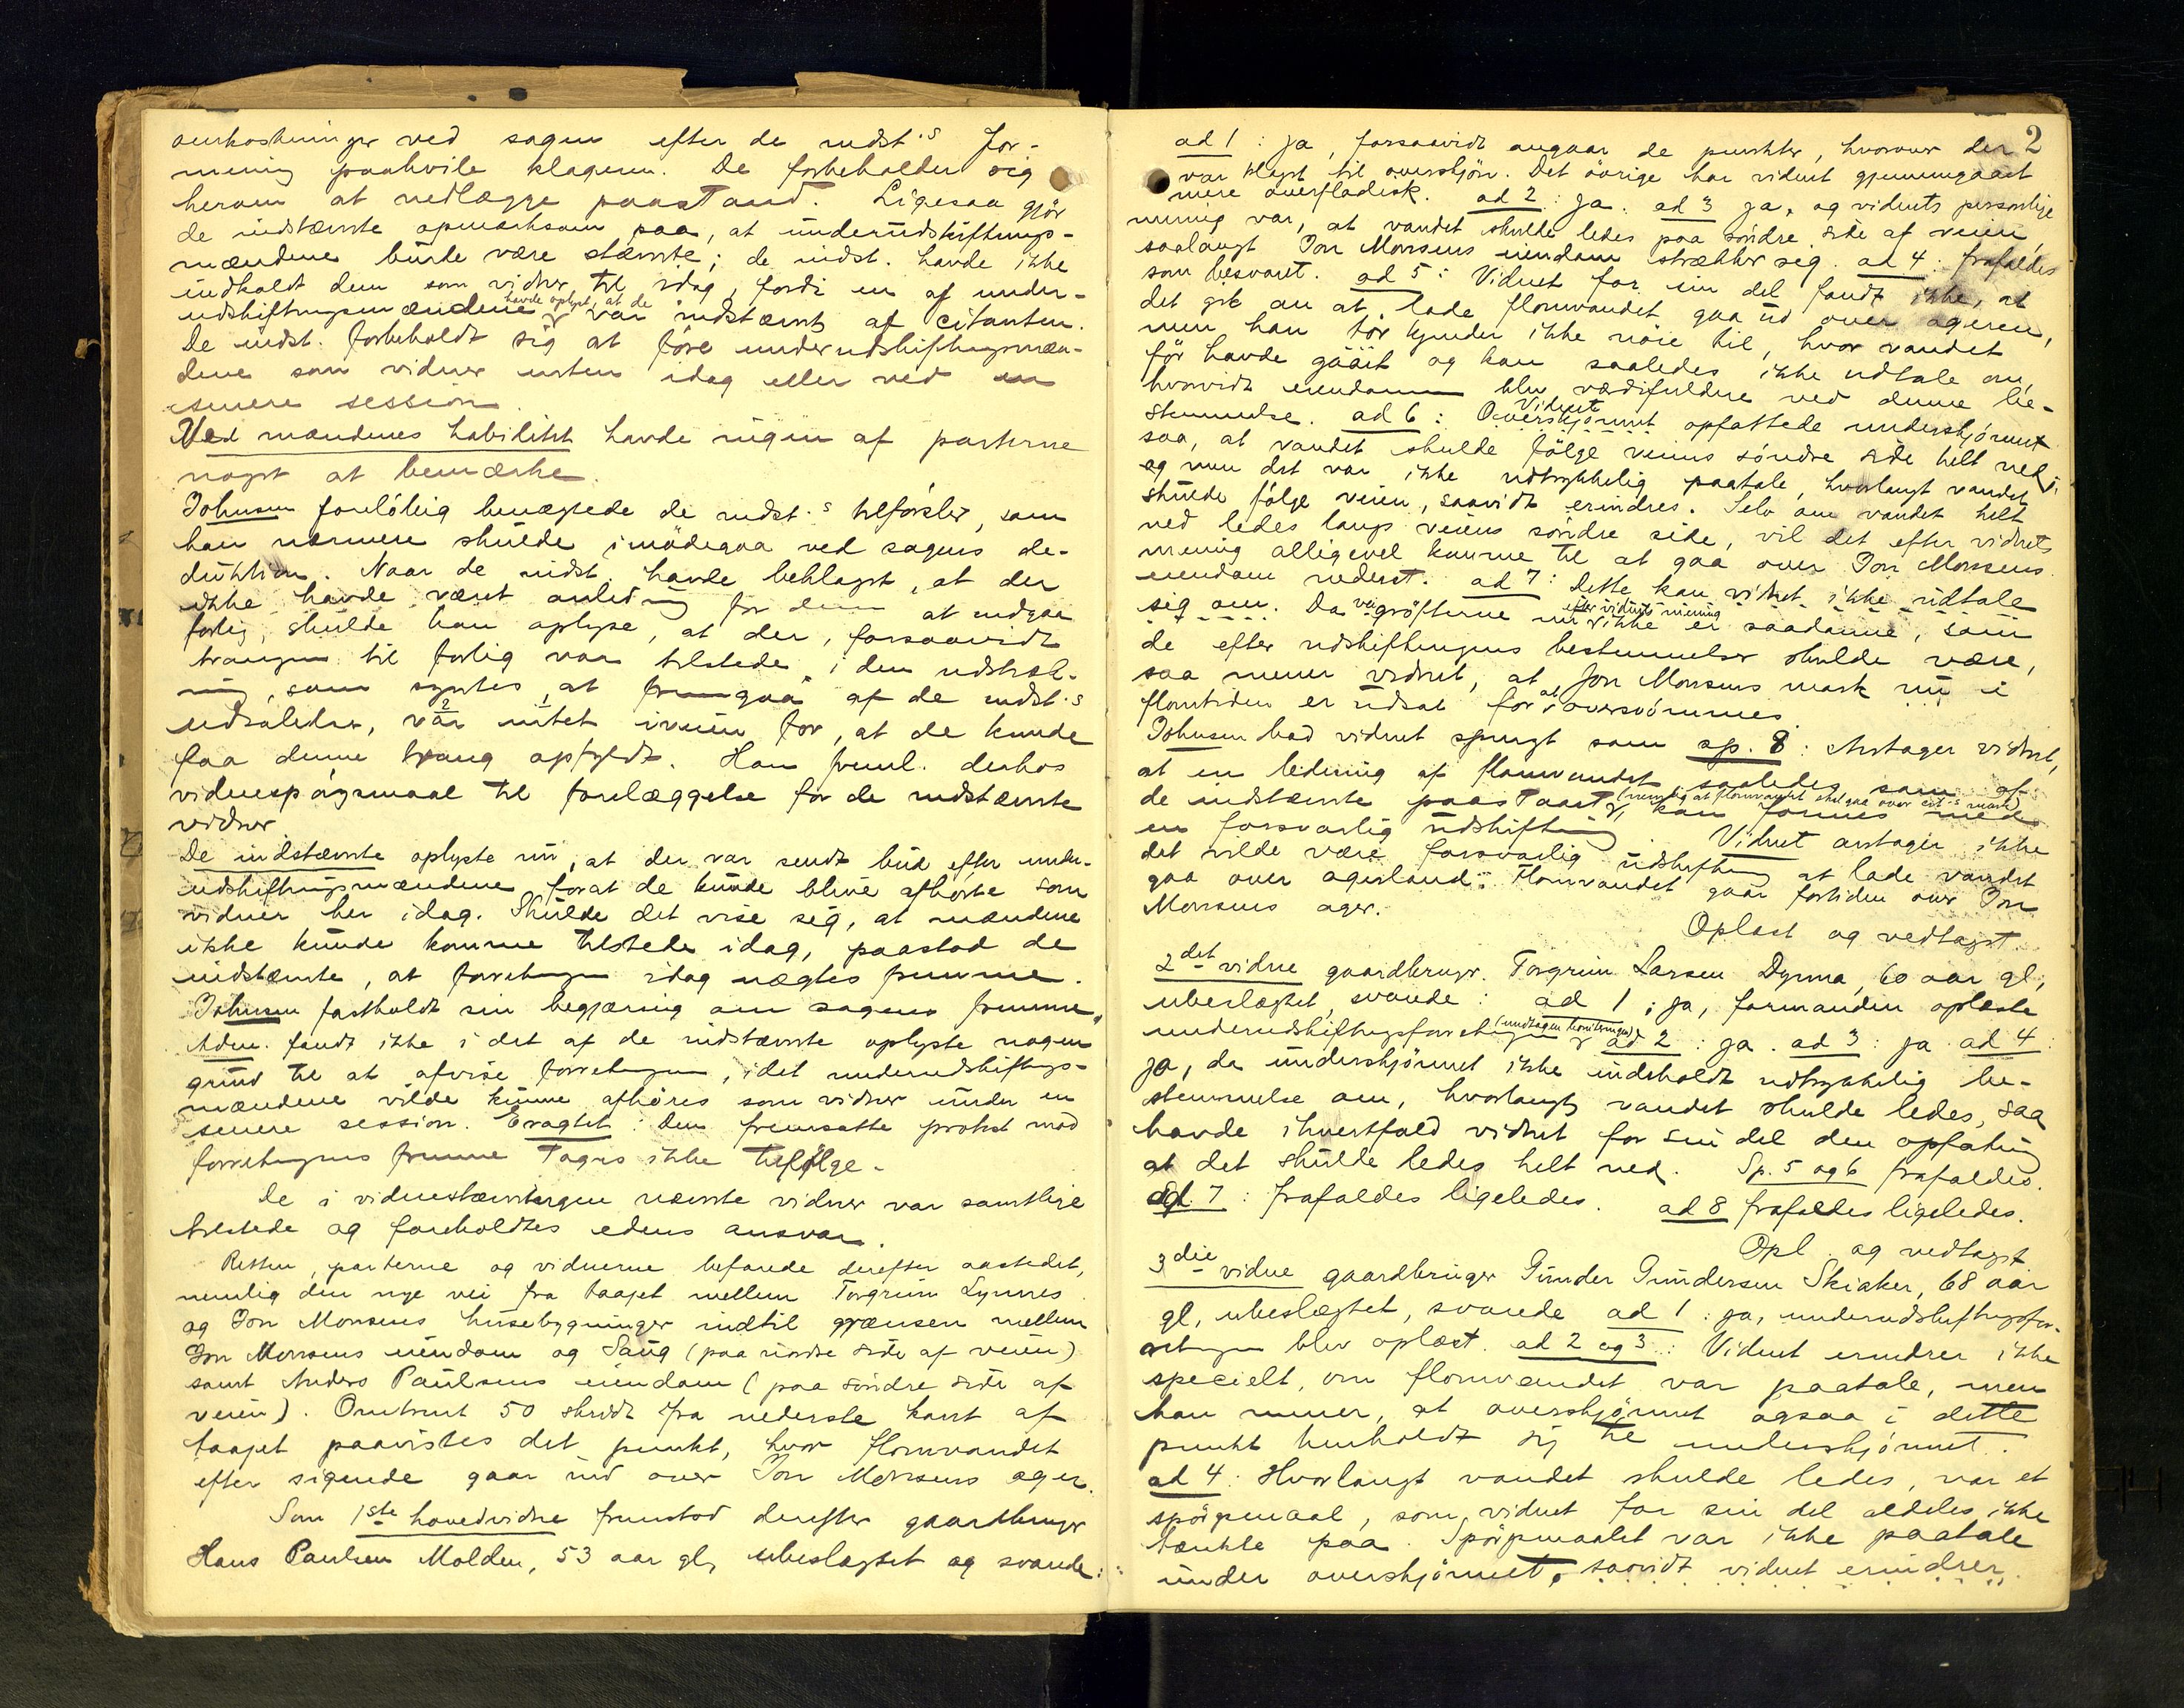 omkostninger ved sagen efter de indst.s for-
mening paahvile klageren. De forbeholder sig
herom at nedlægge paastand. Ligesaa gjør
de indstævnte opmerksom paa, at underudskiftnings-
mændene burde være stævnte; de indst. havde ikke
indkaldt dem som vidner til idag, fordi en af under-
udskiftningsmændene havde oplyst, at de var indstævnt af citanten.
De indst. forbeholdt sig at føre underudskiftningsmæn-
dene som vidner enten idag eller ved en
senere session.
Ved mændenes habilitet havde ingen af parterne
noget at bemærke.
Johnsen foreløbig benægtede de indst.s tilførsler, som
han nærmere skulde imødegaa ved sagens de-
duktion. Naar de indst. havde beklaget, at der
ikke havde været anledning for dem at indgaa
forlig, skulde han oplyse, at der, forsaavidt
trangen til forlig var tilstede i den udstræk-
ning, som syntes at fremgaa af de indst.s
udtalelser, var intet iveien for, at de kunde
faa denne trang opfyldt. Han freml. derhos
vidnespørgsmaal til forelæggelse for de indstævnte
vidner.
De indstævnte oplyste nu, at der var sendt bud efter under-
udskiftningsmændene forat de kunde blive afhørte som
vidner her idag. Skulde det vise seg, at mændene
ikke kunde komme tilstede idag, paastod de
indstævnte, at forretningen idag nægtes fremme.
Johnsen fastholdt sin begjæring om sagens fremme.
Adm. fandt ikke i det af de indstævnte oplyste nogen
grund til at afvise forretningen, idet underudskiftnings-
mændene vilde kunne afhøres som vidner under en
senere session. Eragtet: den fremsatte protest mod
forretningens fremme tages ikke tilfølge.
De i vidnestævningen nævnte vidner var samtlige
tilstede og foreholdtes edens ansvar.
Retten, parterne og vidnerne befarede derefter aastedet,
nemlig den nye vei fra taaget mellem Torgrim Lynnes
og Jon Monsens husebygninger indtil grænsen mellem
Jon Monsens eiendom og Saug (paa nordre side af veien)
samt Anders Paulsens eiendom (paa søndre side af
veien). Omtrent 50 skridt fra nederste kant af
taaget paavistes det punkt, hvor flomvandet
efter sigende gaar ind over Jon Monsens ager.
Som 1ste hovedvidne fremstod derefter gaardbruger
Hans Paulsen Molden, 53 aar gl, ubeslægtet og svarede:
2
ad 1: ja, forsaavidt angaar de punkter, hvorover der
var klaget til overskjøn. Det øvrige har vidnet gjennemgaaet
mere overfladisk. ad 2: ja. ad 3 ja, og vidnets personlige
mening var, at vandet skulde ledes paa søndre side af veien,
saalangt Jon Monsens eiendom strækker seg. ad 4: frafaldes
som besvaret. ad 5: Vidnet for sin del fandt ikke, at
det gik an at lade flomvandet gaa ud over ageren,
men han kjender ikke nøie til, hvor vandet
før havde gaaet og kan saaledes ikke udtale om,
hvorvidt eiendommen blev værdifuldere ved denne be-
stemmelse. ad 6: Vidnet opfattede underskjønnet
saa, at vandet skulde følge veiens søndre side helt ned,
og men det var ikke udtrykkelig paatale, hvorlangt vandet
skulde følge veien, saavidt erindres. Selv om vandet helt
ned ledes langs veiens søndre side, vil det efter vidnets
mening alligevel komme til at gaa over Jon Monsens
eiendom nederst. ad 7: Dette kan vidnet ikke udtale
sig om. Da veigrøfterne nu efter vidnets mening ikke er saadanne, som
de efter udskiftningens bestemmelser skulde være,
saa mener vidnet, at Jon Monsens mark nu i
flomtiden er udsat for at oversvømmes.
Johnsen bad vidnet spurgt som sp. 8: Antager vidnet,
at en ledning af flomvandet saaledes som af
de indstævnte paastaaet (nemlig at flomvandet skal gaa over cit.s mark), kan forenes med
en forsvarlig udskiftning. Vidnet antager ikke
det vilde være forsvarlig udskiftning at lade vandet
gaa over agerland. Flomvandet gaar fortiden over Jon
Monsens ager.
Oplæst og vedtaget.
2det vidne gaardbruger Torgrim Larsen Dynna, 60 aar gl,
ubeslægtet, svarede: ad 1: ja, formanden oplæste
underudskiftningsforretningen. ad 2: ja. ad 3: ja. ad 4:
ja, da underskjønnet ikke indeholdt udtrykkelig be-
stemmelse om, hvorlangt vandet skulde ledes, saa
havde ihvertfald vidnet for sin del den opfatning
at det skulde ledes helt ned. Sp. 5 og 6 frafaldes.
ad 7: frafaldes ligeledes. ad 8 frafaldes ligeledes.
Opl. og vedtaget
3die vidne gaardbruger Gunder Gundersen Skiaker, 68 aar
gl, ubeslægtet, svarede ad 1: ja, underudskiftningsfor-
retningen blev oplæst. ad 2 og 3: Vidnet erindrer ikke
specielt, om flomvandet var paatale, men
han mener, at overskjønnet ogsaa i dette
punkt henholdt sig til underskjønnet.
ad 4: Hvorlangt vandet skulde ledes, var et
spørgsmaal, som vidnet for sin del aldeles ikke
tænkte paa. Spørgsmaalet var ikke paatale
under overskjønnet, saavidt vidnet erindrer.